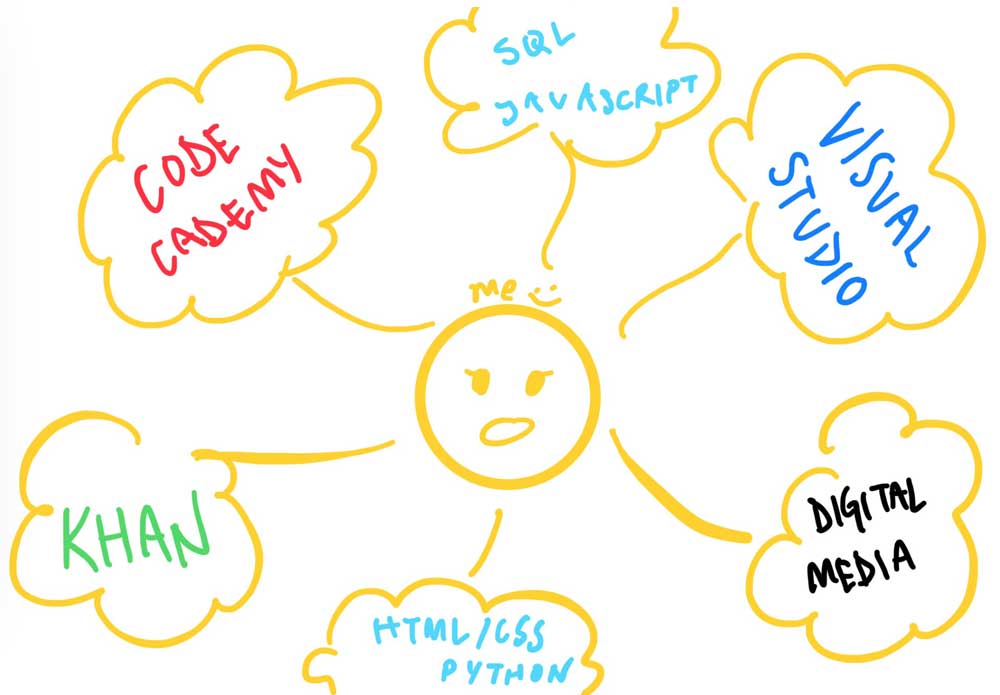 SQL
JAVASCRIPT
CODE
CADEMY
VISUAL
STUDIO
me
KHAN
DIGITAL
MEDIA
HTML/CSS
PYTHON